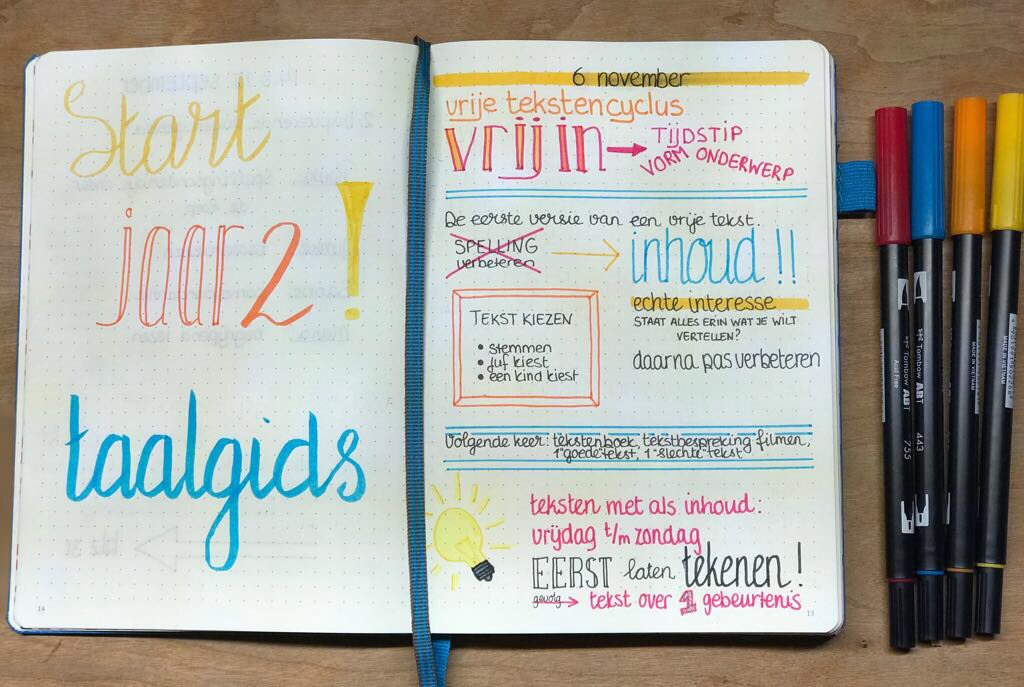 Start
jaar 2!
taalgids
14
6 november
vrije tekstencyclus
vrij in → TIJDSTIP
VORM ONDERWERP
De eerste versie van een vrije tekst.
SPELLING
verbeteren
inhoud!!
echte interesse
STAAT ALLES ERIN WAT JE WILT
VERTELLEN?
daarna pas verbeteren
TEKST KIEZEN
• stemmen
• juf kiest
• een kind kiest
Volgende keer: tekstenboek, tekstbespreking filmen,
1 goede tekst, 1 slechte tekst
teksten met als inhoud:
vrijdag t/m zondag
EERST laten tekenen!
gevolg → tekst over 1 gebeurtenis
Tombow ABT
Acid Free
755
Tombow ABT
443
MADE IN VIETNAM
MADE IN VIETNAM